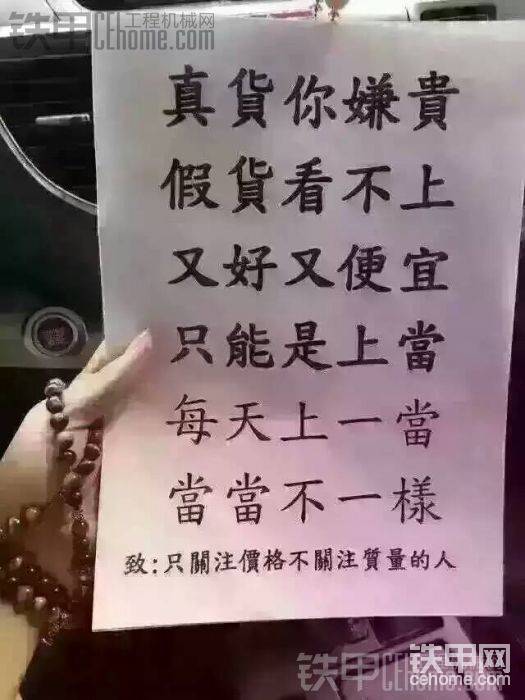 铁甲 工程机械网
CEhome.com
真貨你嫌貴
假貨看不上
又好又便宜
只能是上當
每天上一當
當當不一樣
致:只關注價格不關注質量的人
铁甲网
cehome.com